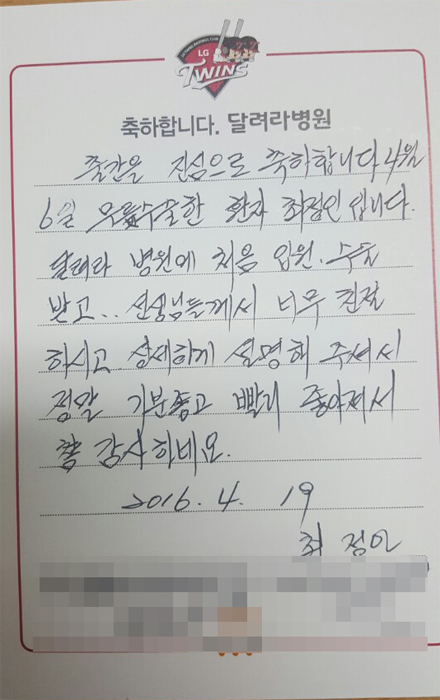 LG
TWINS
축하합니다. 달려라병원
출간을 진심으로 축하합니다 4월
6일 무릎수술한 환자 최정인 입니다.
달려라 병원에 처음 입원. 수술
받고.. 선생님들께서 너무 친절
하시고 상세하게 설명해 주셔서
정말 기분좋고 빨리 좋아져서
참 감사하네요.
2016. 4. 19
최 정인